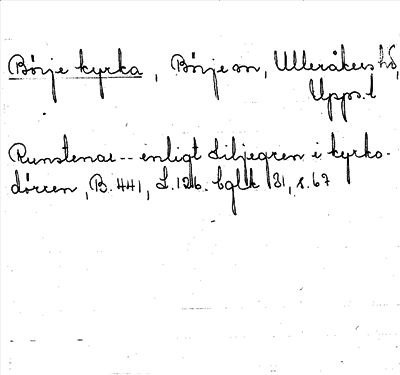 Börje kyrka, Börje sn, Ulleråkers hd,
Upps. l
Runstenar -- enligt Liljegren i kyrko-
dörren, B. 441, L. 126. bglk 131, s. 67